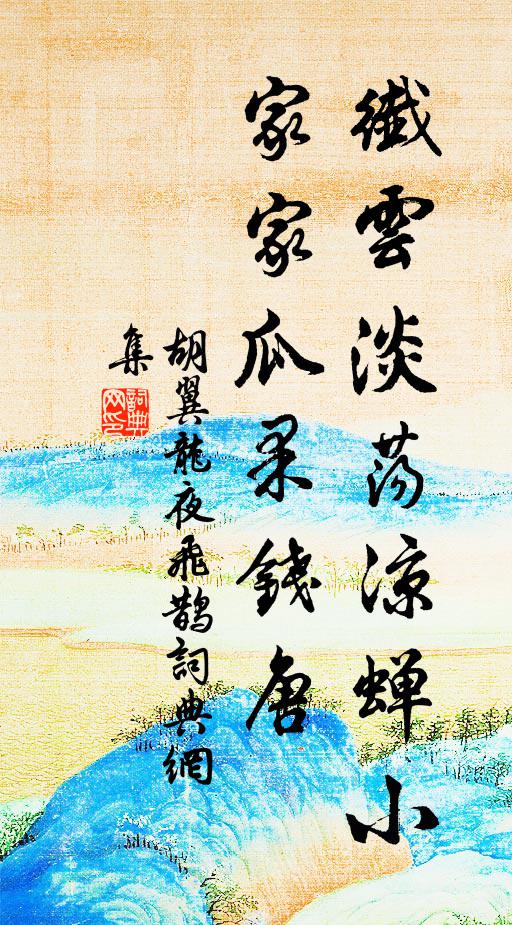 纖雲淡蕩涼蟬小
家家瓜果錢唐
胡翼龍夜飛鵲詞典網
集
詞典
网印